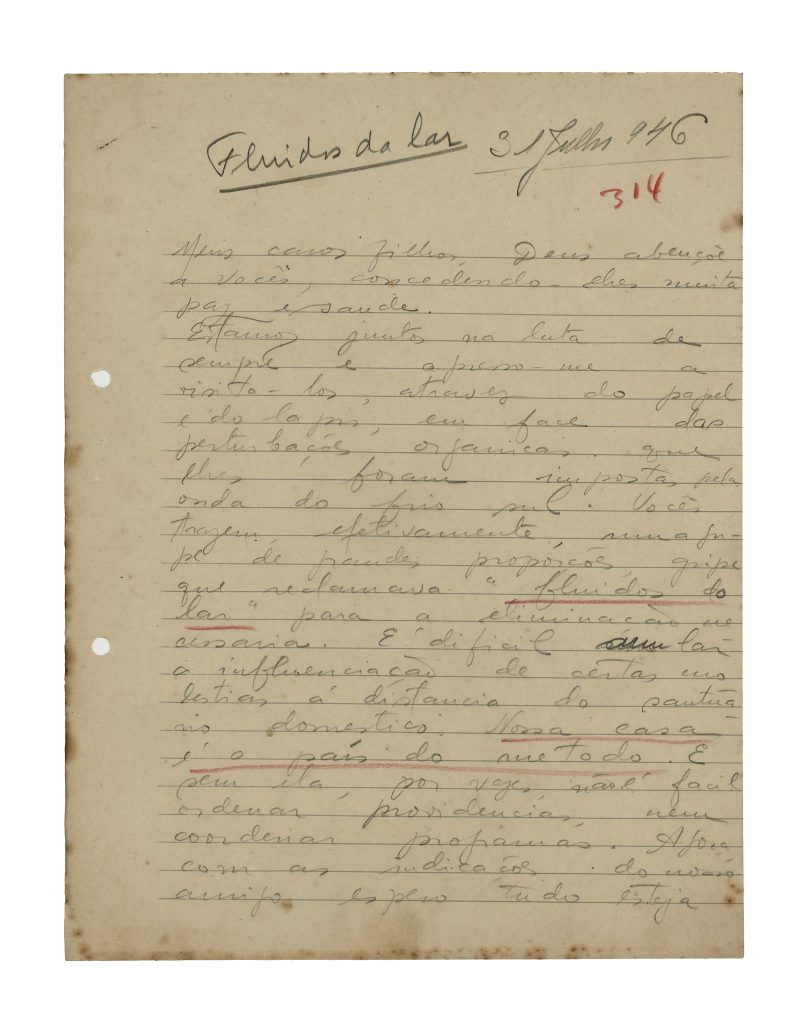 Fluidos do lar 31 Julho 946
314
Meus caros filhos, Deus abençôe
a vocês, concedendo-lhes muita
paz e saude.
Estamos juntos na luta de
sempre e apresso-me a
visita-los, atravez do papel
e do lapis, em face das
perturbações organicas que
lhes foram impostas pela
onda do frio sul. Vocês
trazem, efetivamente, uma gri-
pe de grandes proporções, gripe
que reclamava "fluidos do
lar" para a eliminação ne
cessaria. E' dificil
a influenciação de certas mo
lestias á distancia do santuá
rio domestico. Nossa casa
é o país do metodo. E
sem ela, por vezes, não é facil
ordenar providencias, nem
coordenar programas. Agora
com as indicações do nosso
amigo espero tudo esteja